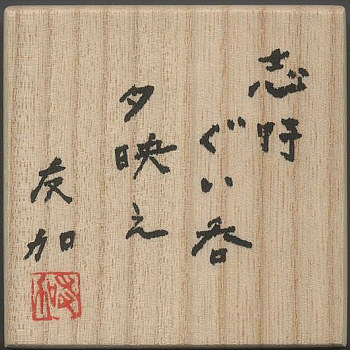 志野
ぐい呑
夕映え
友加